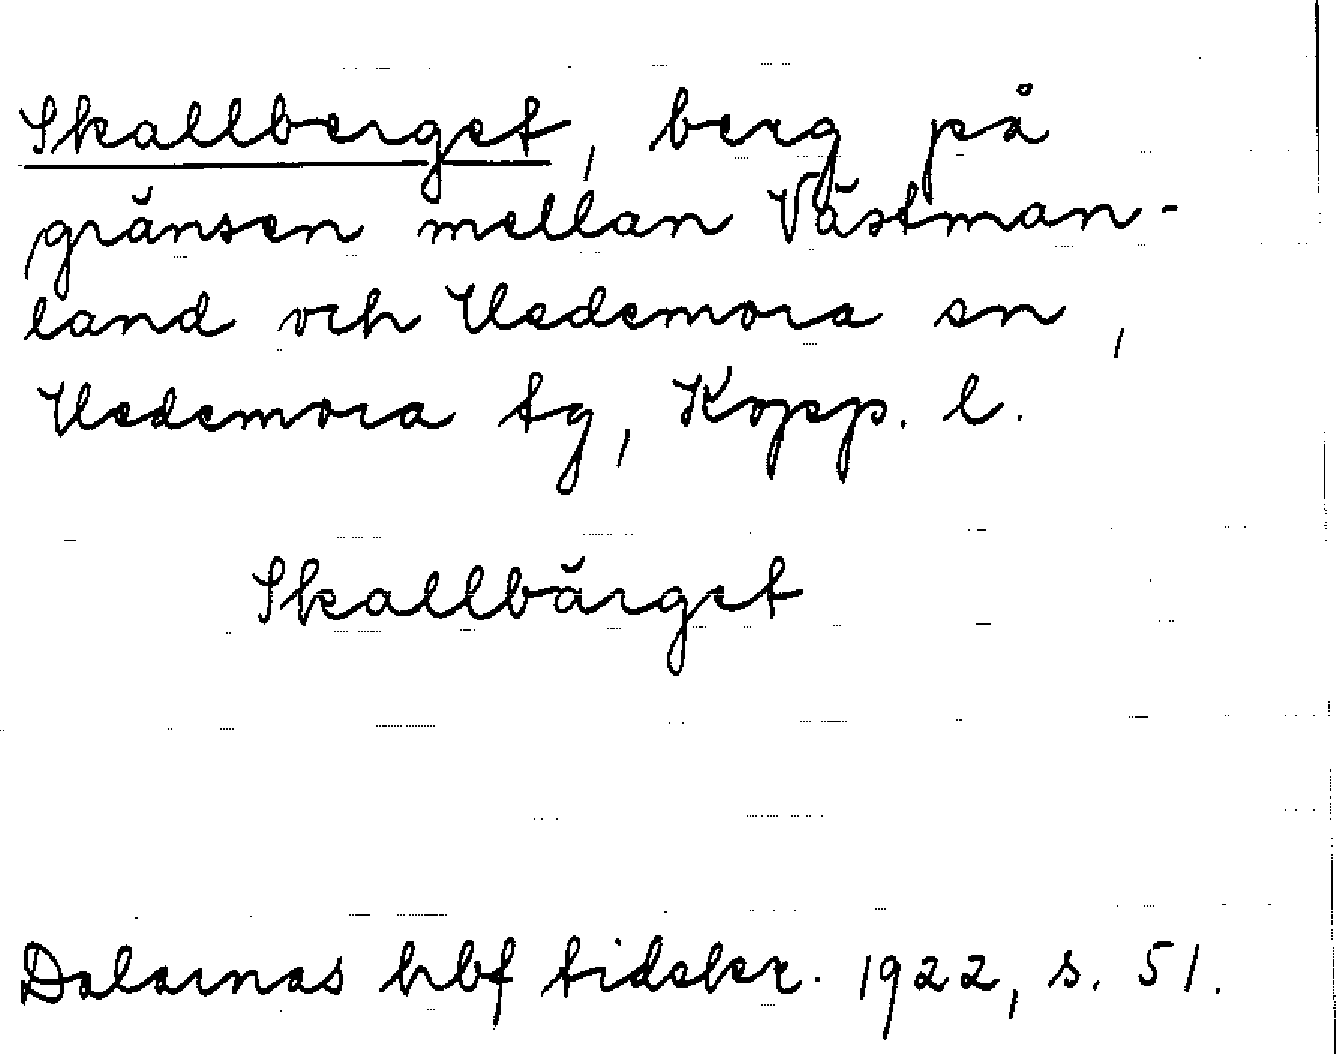 Skallberget, berg på
gränsen mellan Västman-
land och Vedemora sn,
Vedemora tg, Kopp. l.
Skallbärget
Dalarnas hbf tidskr. 1922, s. 51.